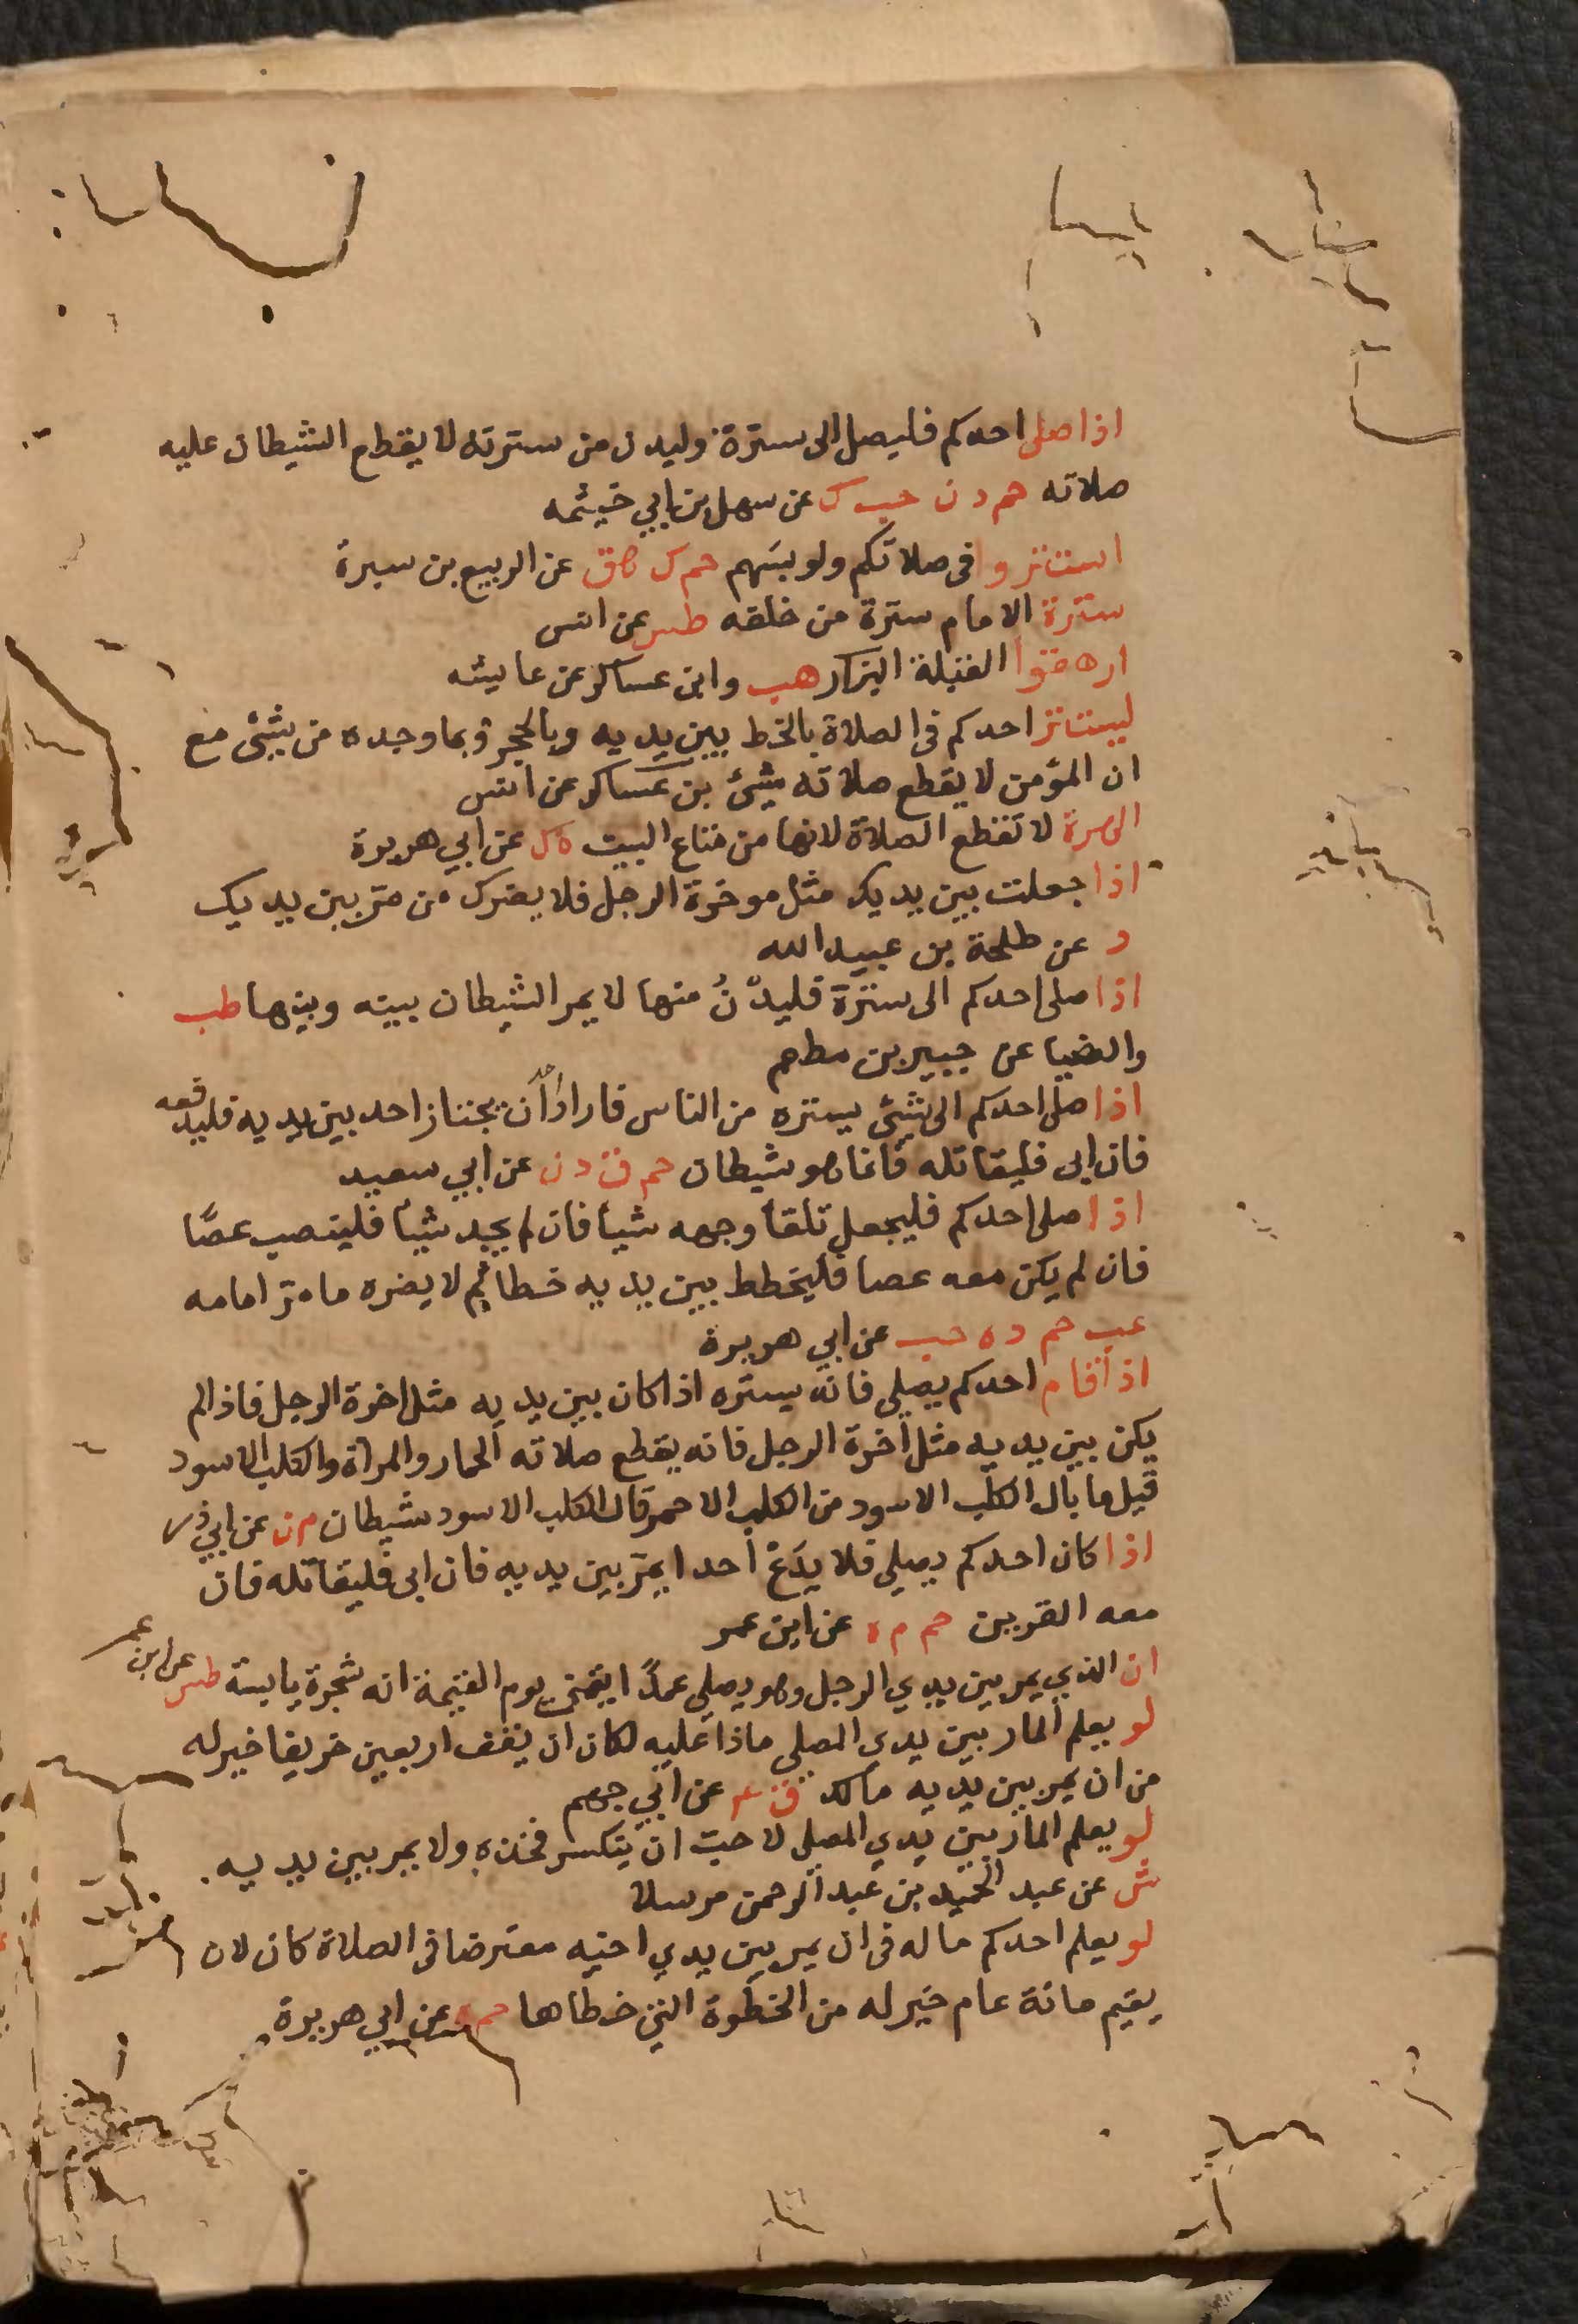 اذا صلى احدكم فليصل الى سترة وليدن من سترته لا يقطع الشيطان عليه
صلاته حم د ن حب ك عن سهل بن ابي خيثمه
استتروا فى صلاتكم ولو بسَهم حم ك هق عن الربيع بن سبرة
سترة الامام سترة من خلفه طس عن انس
ارهقوا القبلة البزار هب وابن عساكر عن عايشه
ليستتر احدكم فى الصلاة بالخط بين يديه وبالحجر وبما وجده من شئ مع
ان المؤمن لا يقطع صلاته شئ بن عساكر عن انس
الهرة لا تقطع الصلاة لانها من متاع البيت ه ك عن ابي هريرة
اذا جعلت بين يديك مثل موخرة الرحل فلا يضرك من مرّ بين يديك
د عن طلحة بن عبيد الله
اذا صلى احدكم الى سترة فليدْنُ منها لا يمر الشيطان بينه وبينها طب
والضيا عن جبير بن مطعم
اذا صلى احدكم الى شئ يستره من الناس فاراد احد ان يجتاز احد بين يديه فليدفعه
فان ابى فليقاتله فانما هو شيطان حم ق د ن عن ابي سعيد
اذا صلى احدكم فليجعل تلقا وجهه شيا فان لم يجد شيا فلينصب عصًا
فان لم يكن معه عصا فليخطط بين يديه خطا ثم لا يضره ما مرّ امامه
عب حم د ه حب عن ابي هريرة
اذا قام احدكم يصلى فانه يستره اذا كان بين يديه مثل اخرة الرحل فاذا لم
يكن بين يديه مثل أخرة الرحل فانه يقطع صلاته الحمار والمراة والكلب الاسود
قيل ما بال الكلب الاسود من الكلب الاحمر قال الكلب الاسود شيطان م ن عن ابي ذر
اذا كان احدكم يصلي فلا يَدَعْ احدا يمرّ بين يديه فان ابى فليقاتله فان
معه القرين حم م ه عن ابن عمر
ان الذي يمر بين يدي الرجل وهو يصلي عمدًا يتمنى يوم القيمة انه شجرة يابسة طس عن ابن عمر
لو يعلم المار بين يدي المصلى ماذا عليه لكان ان يقف اربعين خريفا خير له
من ان يمر بين يديه مالك ق ع عن ابي جهم
لو يعلم المار بين يدي المصلى لاحبّ ان يتكسر فخذه ولا يمر بين يديه
ش عن عبد الحميد بن عبد الرحمن مرسلا
لو يعلم احدكم ما له فى ان يمر بين يدي اخيه معترضا فى الصلاة كان لان
يقيم مائة عام خير له من الخطوة التي خطاها حم ه عن ابي هريرة